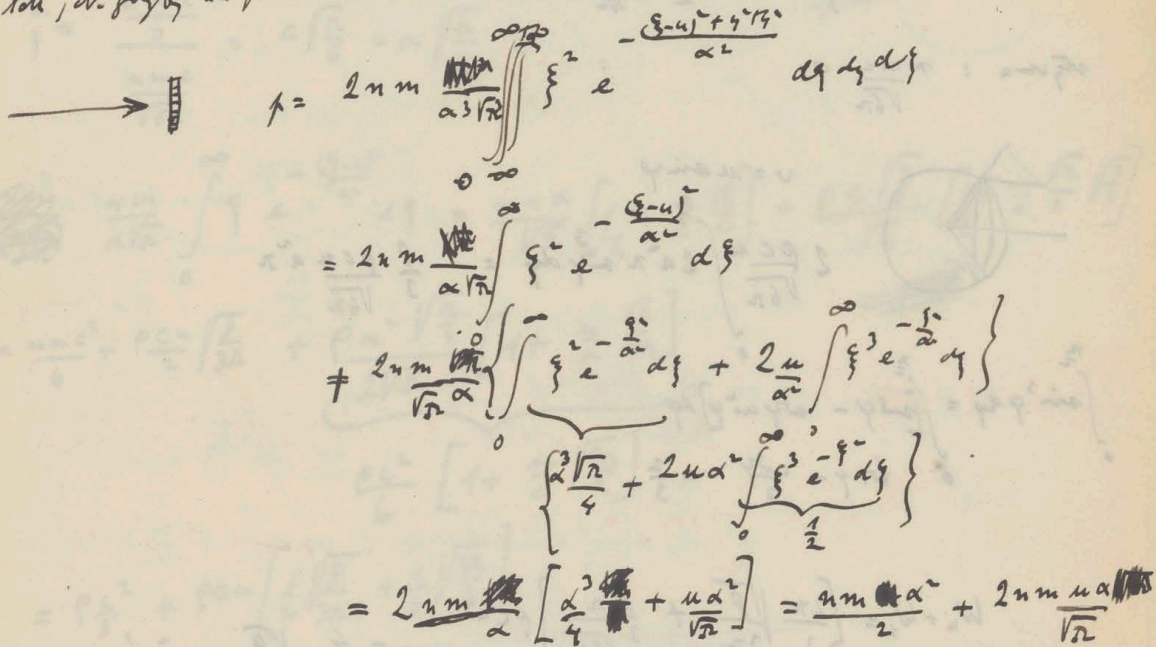 p = 2nm 1/(α³√π³) ∫₀^∞ ∫∫_{-∞}^{∞} ξ² e^{-((ξ-u)²+η²+ζ²)/α²} dξ dη dζ
= 2nm 1/(α√π) ∫₀^∞ ξ² e^{-(ξ-u)²/α²} dξ
≠ 2nm/(√π α) { ∫₀^∞ ξ² e^{-ξ²/α²} dξ + 2u/α² ∫₀^∞ ξ³ e^{-ξ²/α²} dξ }
{ α³ √π/4 + 2uα² ∫₀^∞ ξ³ e^{-ξ²} dξ }
1/2
= 2nm/α [ α³/4 + uα²/√π ] = nmα²/2 + 2nm uα/√π